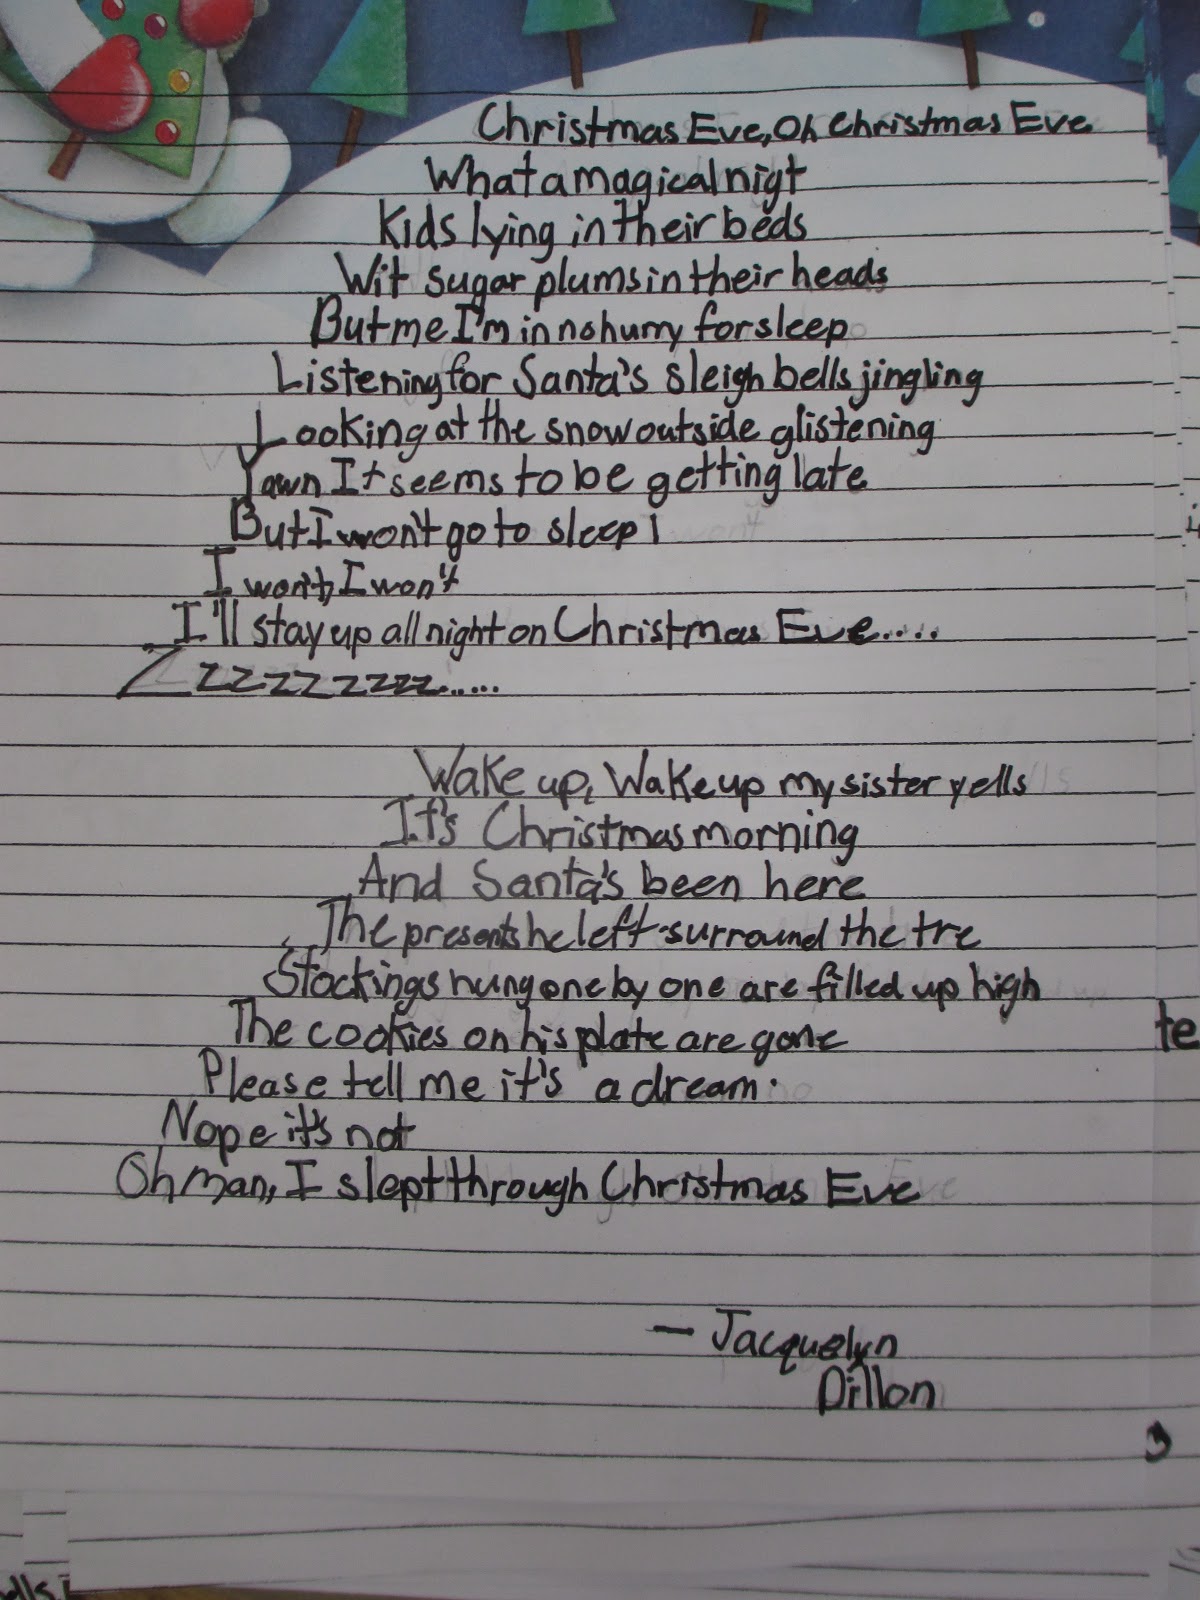 Christmas Eve, Oh Christmas Eve
What a magical nigt
Kids lying in their beds
Wit sugar plums in their heads
But me I'm in no hurry for sleep
Listening for Santa's sleigh bells jingling
Looking at the snow outside glistening
Yawn It seems to be getting late
But I won't go to sleep!
I won't, I won't
I'll stay up all night on Christmas Eve....
Zzzzzzzzzz......
Wake up, Wake up my sister yells
It's Christmas morning
And Santa's been here
The presents he left surround the tre
Stockings hung one by one are filled up high
The cookies on his plate are gone
Please tell me it's a dream.
Nope it's not
Oh man, I slept through Christmas Eve
— Jacquelyn
Dillon
te